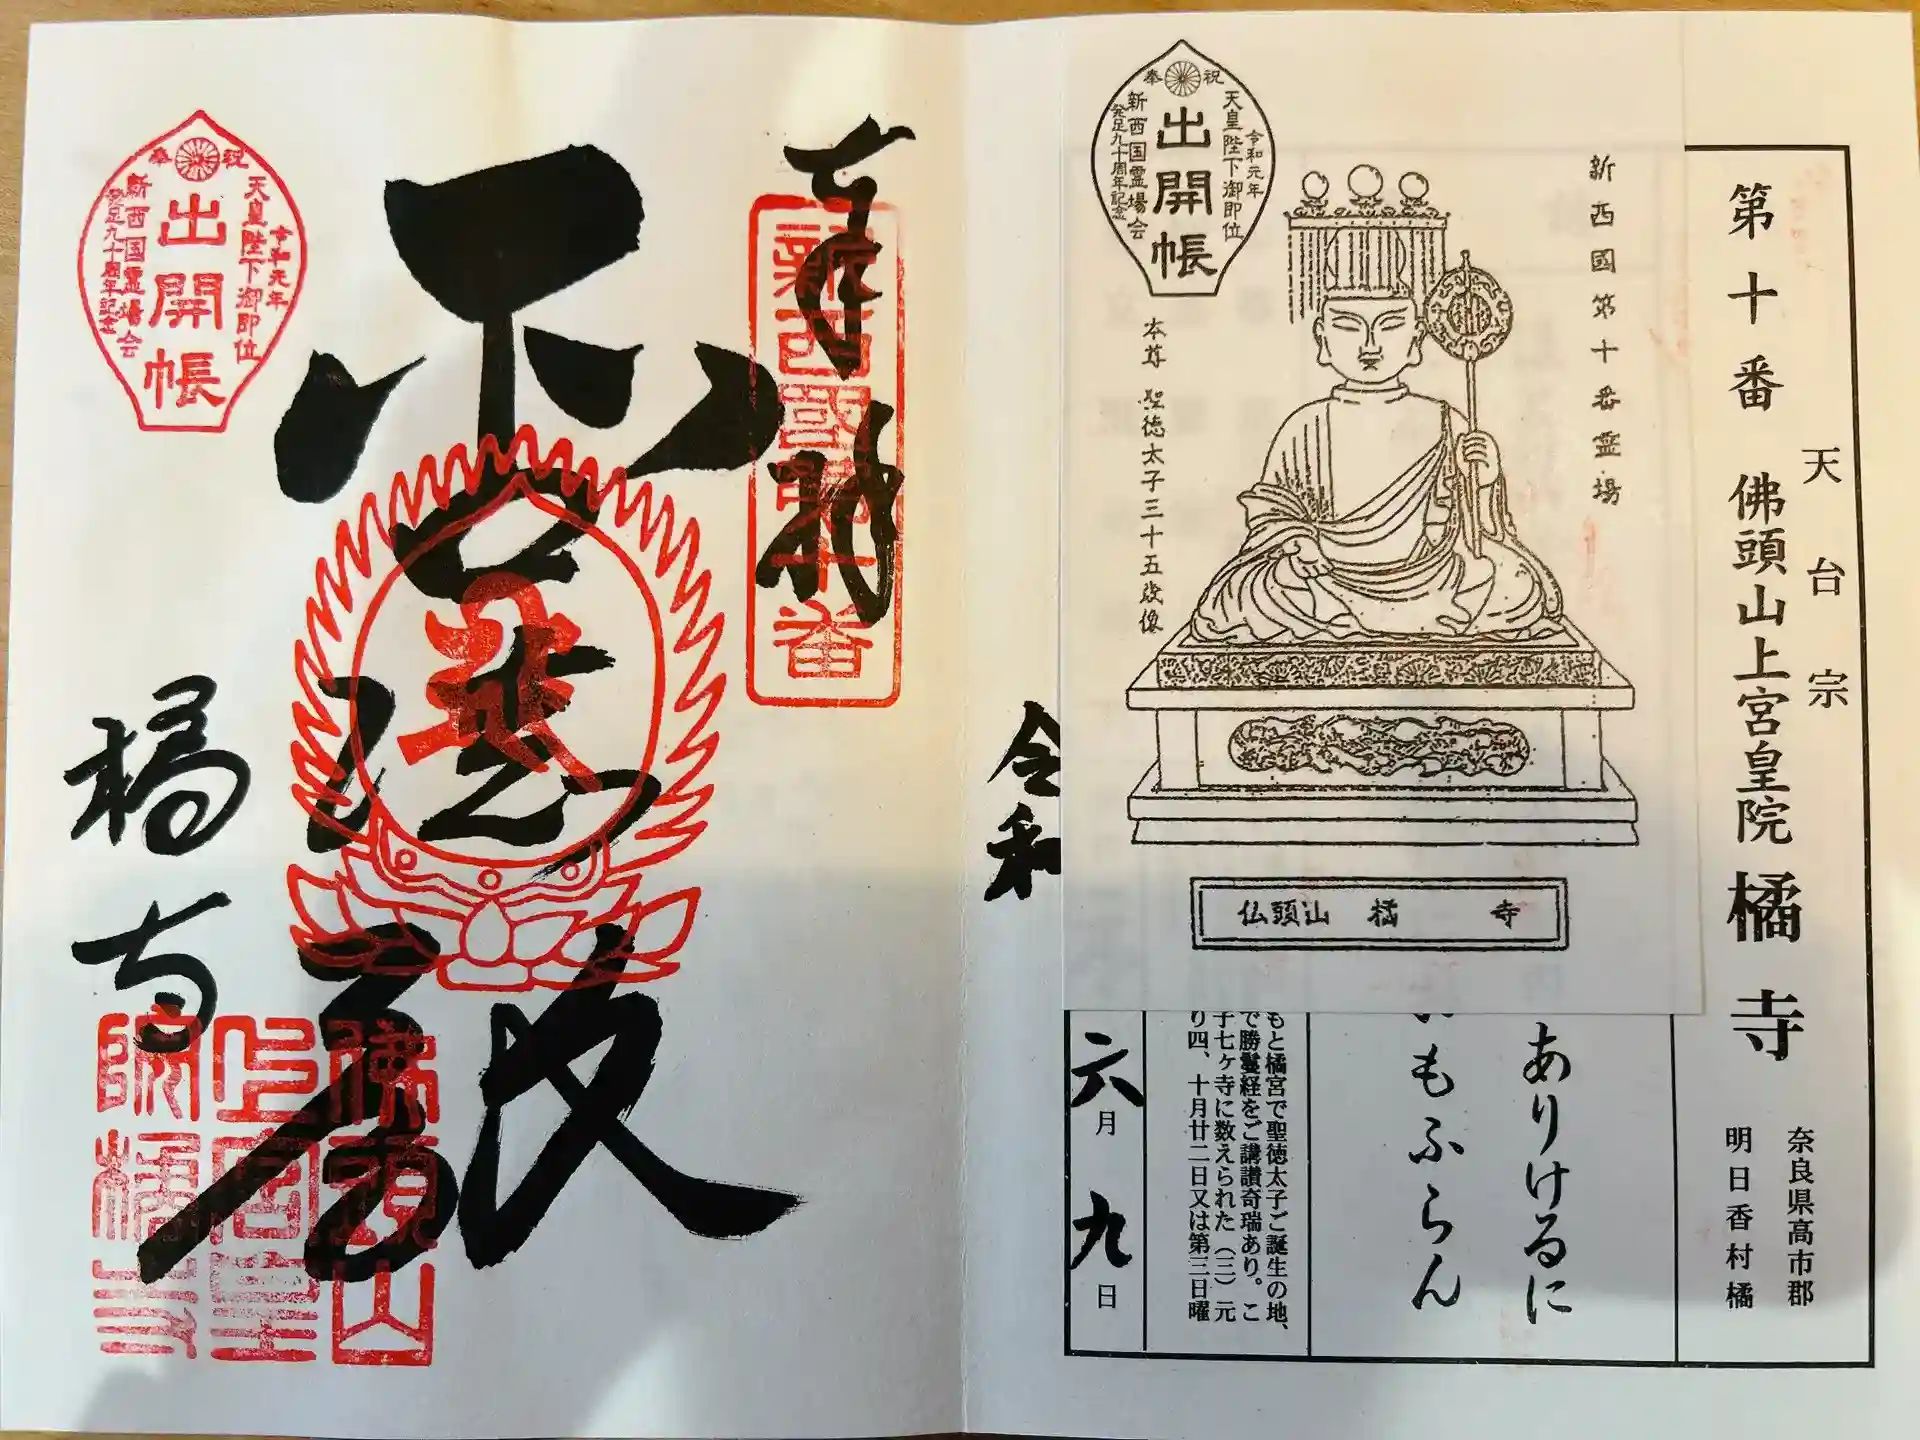 第十番 佛頭山上宮皇院 橘寺
天台宗
奈良県高市郡
明日香村橘
新西國第十番霊場
本尊 聖徳太子三十五歳像
奉祝
令和元年
天皇陛下御即位
出開帳
新西国霊場会
発足九十周年記念
仏頭山 橘寺
ありけるに
もふらん
もと橘宮で聖徳太子ご誕生の地、
で勝鬘経をご講讃奇瑞あり。こ
子七ヶ寺に数えられた（三）元
り四、十月廿二日又は第三日曜
令和
六月九日
奉拝
新西國第十番
橘寺
佛頭山
上宮皇
院橘寺
奉祝
令和元年
天皇陛下御即位
出開帳
新西国霊場会
発足九十周年記念